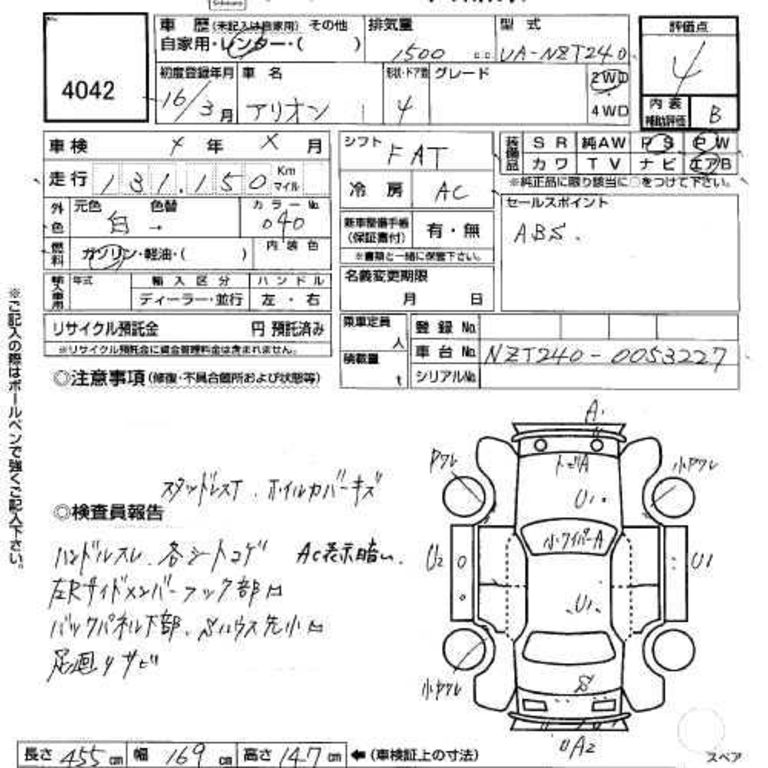 車歴 (未記入は自家用) その他 排気量 型式 評価点
自家用・レンター・( ) 1500 cc UA-NZT240 4
4042
初度登録年月 車名 形状・ドア数 グレード 2WD
16/3月 アリオン 4 4WD
内装補助評価 B
車検 年 X 月 シフト FAT
装備品 SR 純AW PS PW
カワ TV ナビ エアB
※純正品に限り該当に○をつけて下さい。
走行 131,150 Km マイル 冷房 AC
セールスポイント
ABS.
外色 元色 色替 カラーNo.
白 → 040
新車整備手帳(保証書付) 有・無
※書類と一緒に保管下さい。
燃料 ガソリン・軽油・( ) 内装色
輸入車用 年式 輸入区分 ハンドル
ディーラー・並行 左・右
名義変更期限
月 日
リサイクル預託金 円 預託済み
※リサイクル預託金に資金管理料金は含まれません。
乗車定員 人
積載量 t
登録No.
車台No. NZT240-0053227
シリアルNo.
◎注意事項 (修復・不具合箇所および状態等)
スタッドレスT. ホイルカバーキズ
◎検査員報告
ハンドルスレ 各シートコゲ AC表示暗い.
左Rサイドメンバーフック部
バックパネル下部、Sハウス先小
サビ
※ご記入の際はボールペンで強くご記入下さい。
A
トビA
U1
小ワイパーA
U2
U1
U1
S
A2
スペア
長さ 455 cm 幅 169 cm 高さ 147 cm ← (車検証上の寸法)